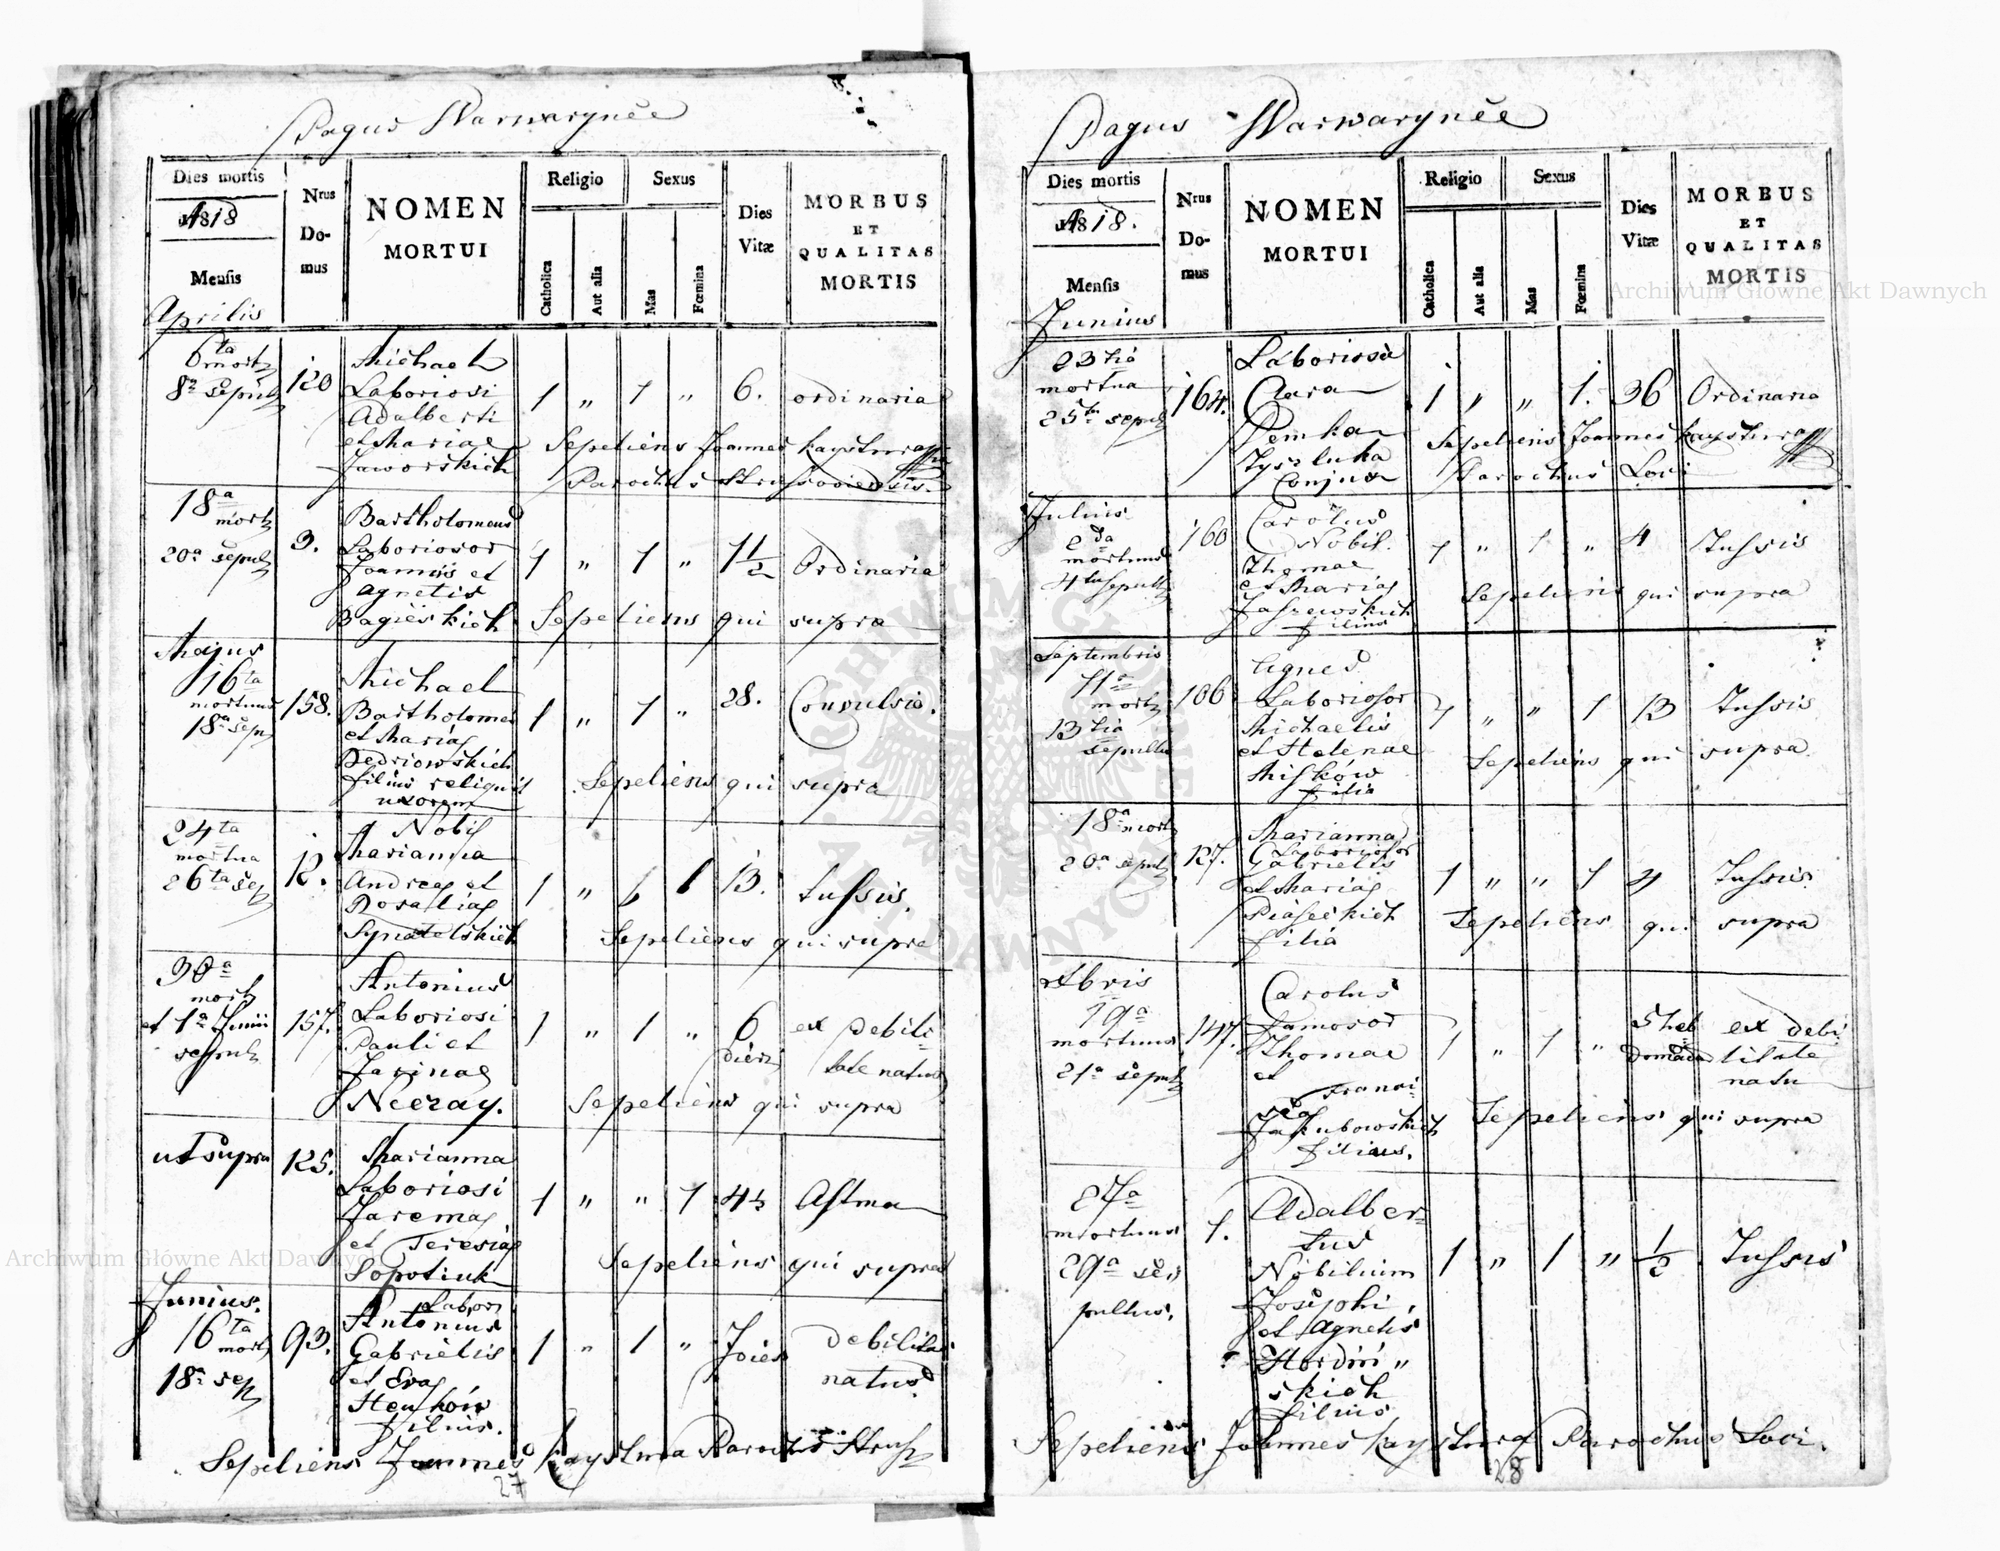 Pagus Warwaryńce
Dies mortis
1818
Mensis
Aprilis
Nrus
Do-
mus
NOMEN
MORTUI
Religio
Sexus
Catholica
Aut alia
Mas
Fœmina
Dies
Vitæ
MORBUS
ET
QUALITAS
MORTIS
6ta
mort
8a sepult
120
Michael
Laboriosi
Adalberti
et Mariae
Jaworskich
1 " 1 " 6. ordinaria
Sepeliens Joannes Kaystura
Parochus Strussoviensis
18a
mort
20a sepult
3.
Bartholomeus
Laboriosor
Joannis et
Agnetis
Bagieskich
1 " 1 " 1 1/2 Ordinaria
Sepeliens qui supra
Majus
16ta
mortuus
18a sep
158.
Michael
Bartholomei
et Mariae
Dedriowskich
filius reliquit
uxorem
1 " 1 " 28. Convulsio.
Sepeliens qui supra
24ta
mortua
26ta sep
12.
Nobil
Marianna
Andreae et
Rosaliae
1 " 1 13. tussis.
Sepeliens qui supra
30a
mort
et 1a Junii
sepult
157.
Antonius
Laboriosi
Pauli et
Jarinae
Neczay.
1 " 1 " 6
dier
ex debili
tate natus
Sepeliens qui supra
ut supra
125.
Marianna
Laboriosi
Jarema
et Teresiae
Sopotiuk
1 " " 1 45 Astma
Sepeliens qui supra
Junius.
16ta
mort
18a sep
93.
Labor
Antonius
Gabrielis
et Evae
filius.
1 " 1 " debilitas
natus
Sepeliens Joannes Kaystura Parochus Struss
27
Pagus Warwaryńce
Dies mortis
1818.
Mensis
Junius
Nrus
Do-
mus
NOMEN
MORTUI
Religio
Sexus
Catholica
Aut alia
Mas
Fœmina
Dies
Vitæ
MORBUS
ET
QUALITAS
MORTIS
23tia
mortua
25ta sepult
164.
Laboriosa
Clara
Demka
Tyszluka
Conjux
1 " " 1. 36 Ordinaria
Sepeliens Joannes Kaystura
Parochus Loci
Julius
2da
mortuus
4ta sepult
160
Carolus
Nobil.
Thomae
et Mariae
Jaszewskich
filius
1 " 1 " 4 Tussis
Sepeliens qui supra
Septembris
11a
mort
13tia
sepulta
106
Agnes
Laboriosor
Michaelis
et Helenae
Misków
filia
1 " " 1 13 Tussis
Sepeliens qui supra
18a mort
20a sepult
127.
Marianna
Laboriosor
Gabrielis
et Mariae
Piaseckich
filia
1 " " 1 4 Tussis
Sepeliens qui supra
19a
mortuus
21a sepult
147.
Carolus
Famosor
Thomae
et
Franci-
scae
Jakubowskich
filius.
1 " 1 " 5 heb
domada
ex debi
litate
natu
Sepeliens qui supra
27a
mortuus
29a se
pultus.
1.
Adalber-
tus
Nobilium
Josephi
et Agnetis
Hordin "
skich
filius
1 " 1 " 1/2 Tussis
Sepeliens Joannes Kaystura Parochus Loci.
28
Archiwum Główne Akt Dawnych
Archiwum Główne Akt Dawnych
ARCHIWUM GŁÓWNE
AKT DAWNYCH